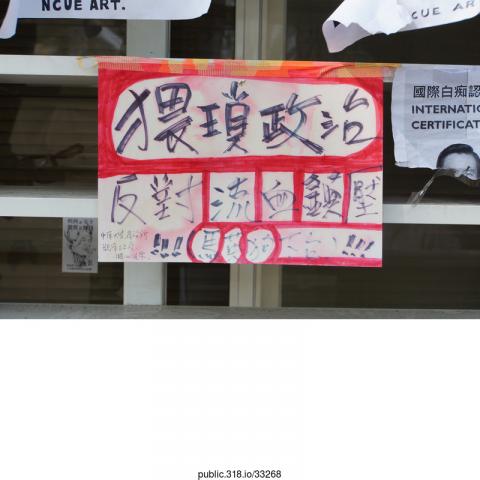 NCUE ART.
CUE AR
猥瑣政治
反對流血鎮壓
!!! 馬英九下台 !!!
國際白痴認
INTERNATIO
CERTIFICAT
public.318.io/33268